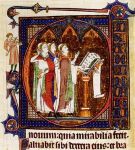 nouum: quia mirabilia fecit
saluabit sibi dextera eius: et bra